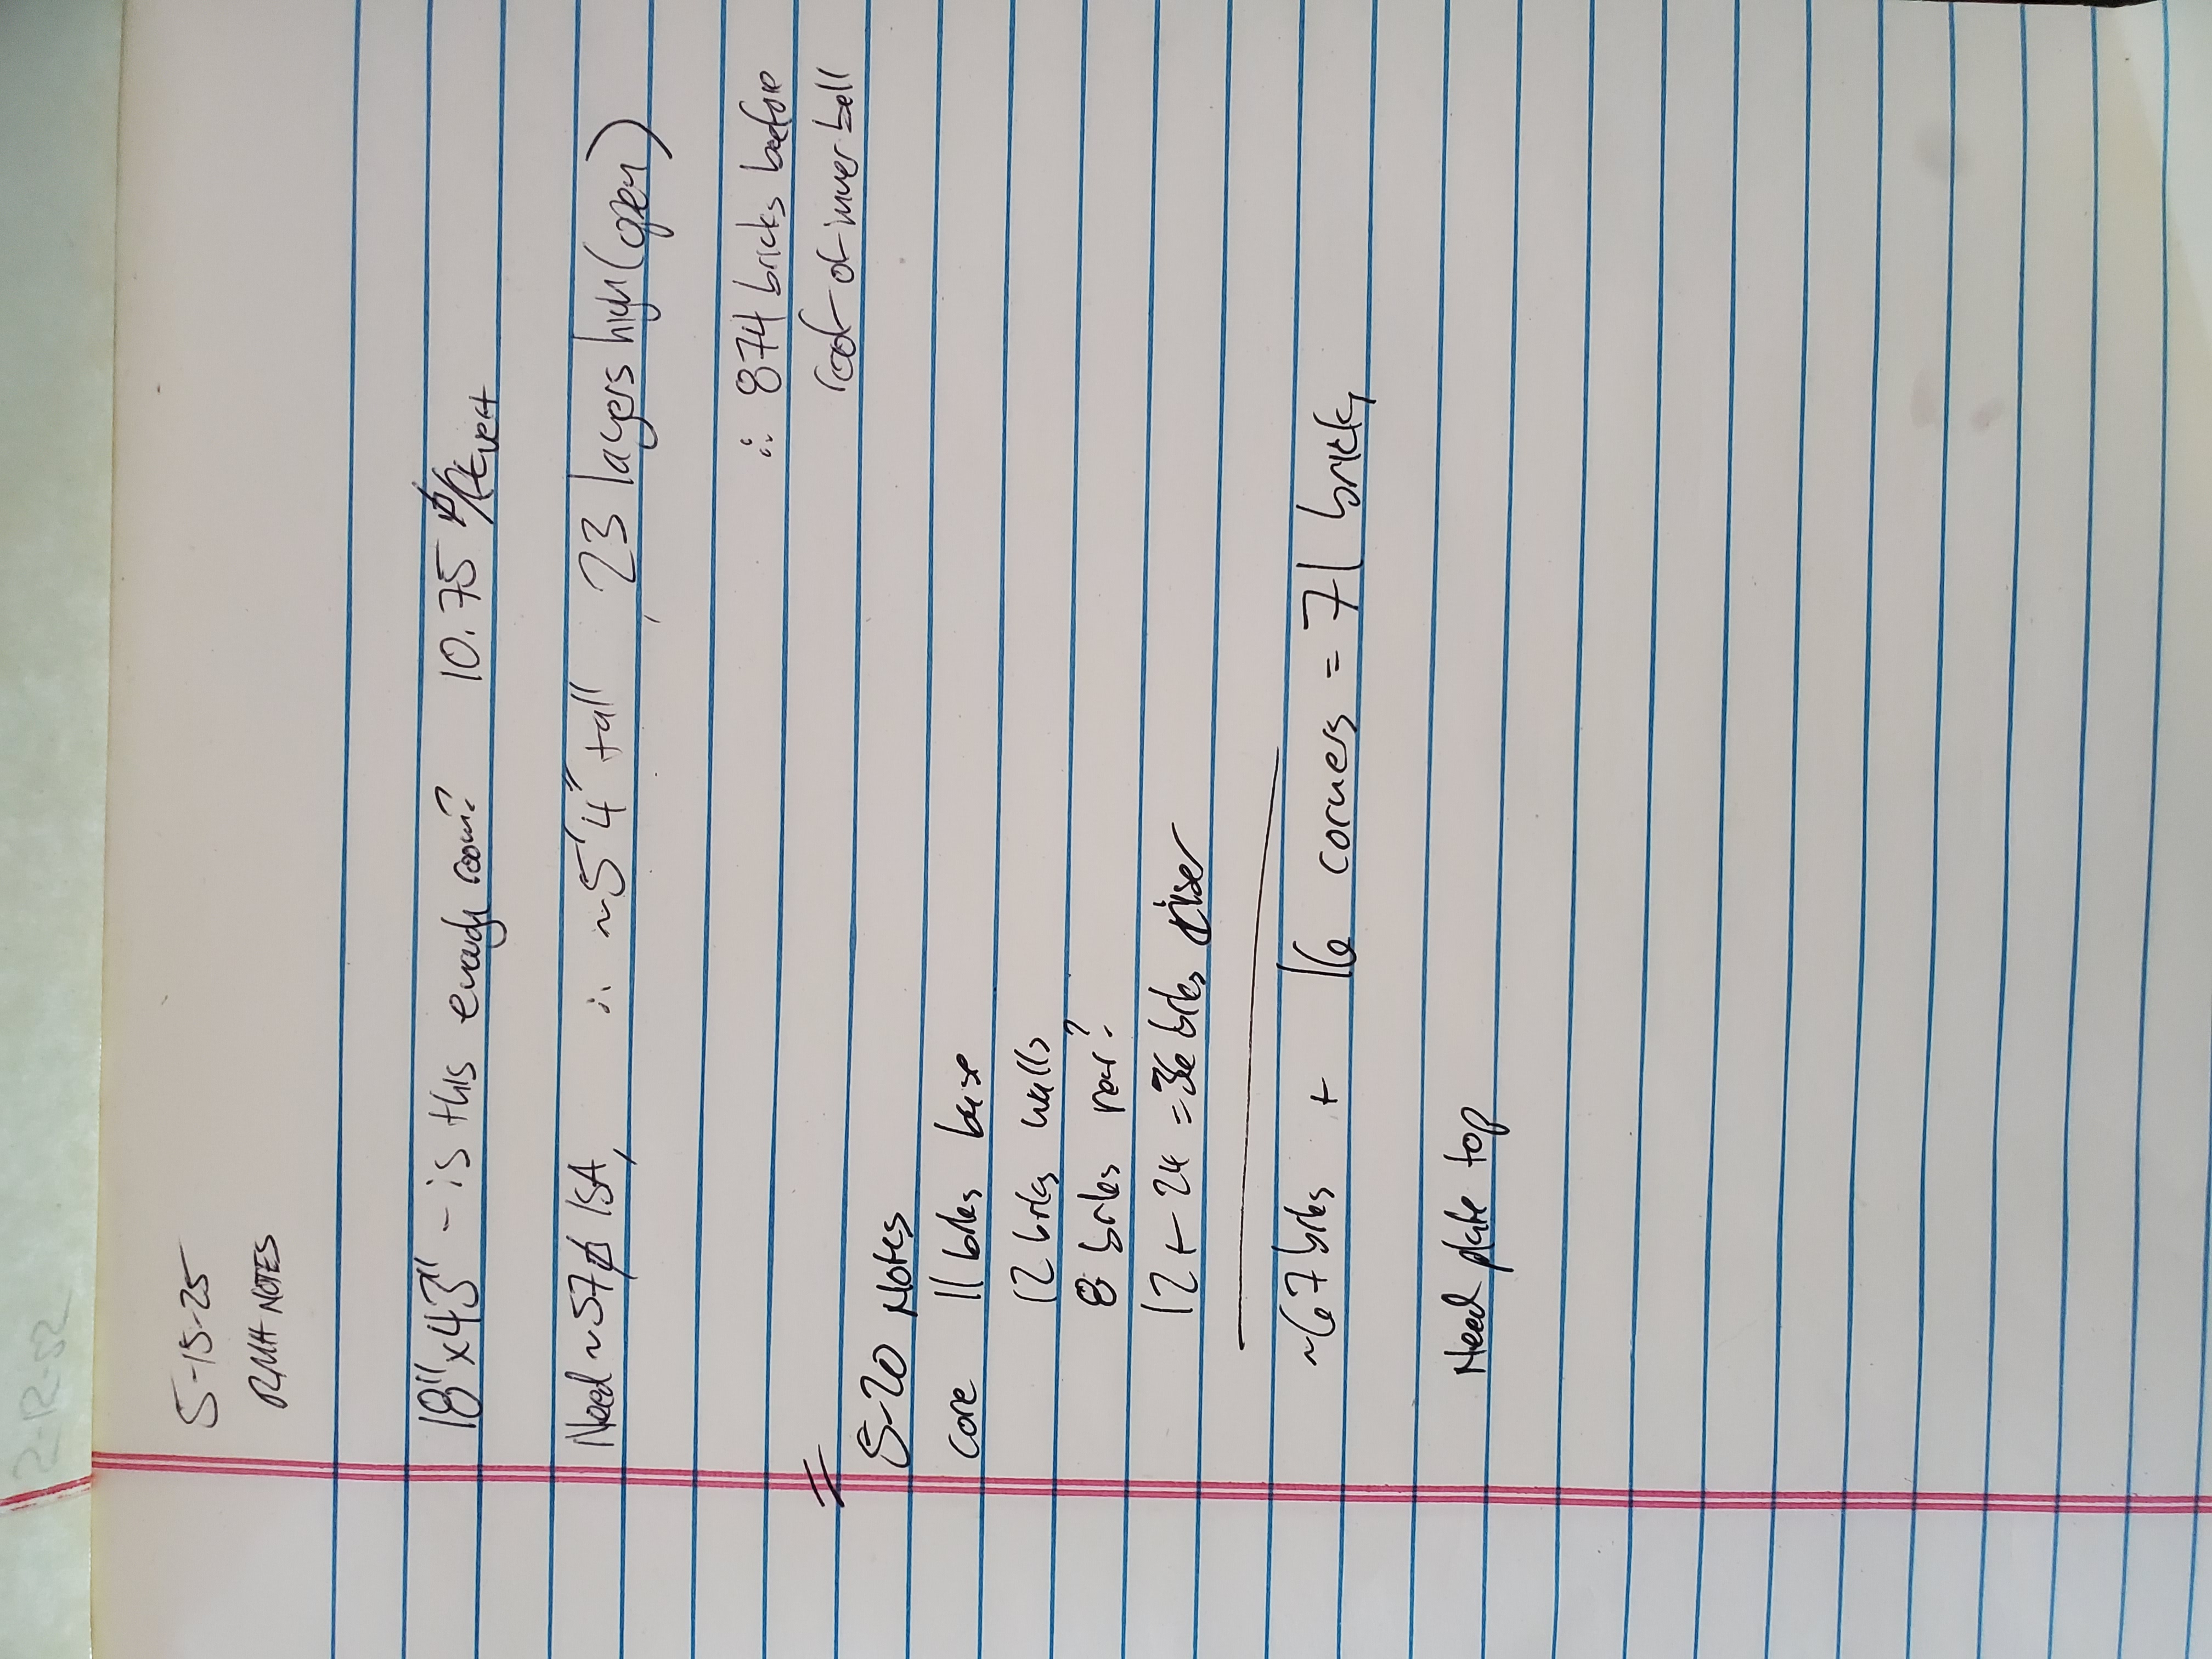 5-15-25
RMH NOTES
18"x43" - is this enough room? 10.75 ⌀/ft vert
Need ~57⌀ ISA, ∴ ~5'4" tall, 23 layers high (open)
∴ 874 bricks before
roof of inner bell
5-20 Notes
Core 11 brks base
12 brks walls
8 brks roof?
12 + 24 = 36 brks riser
~67 brks + 16 corners = 71 bricks
Need plate top